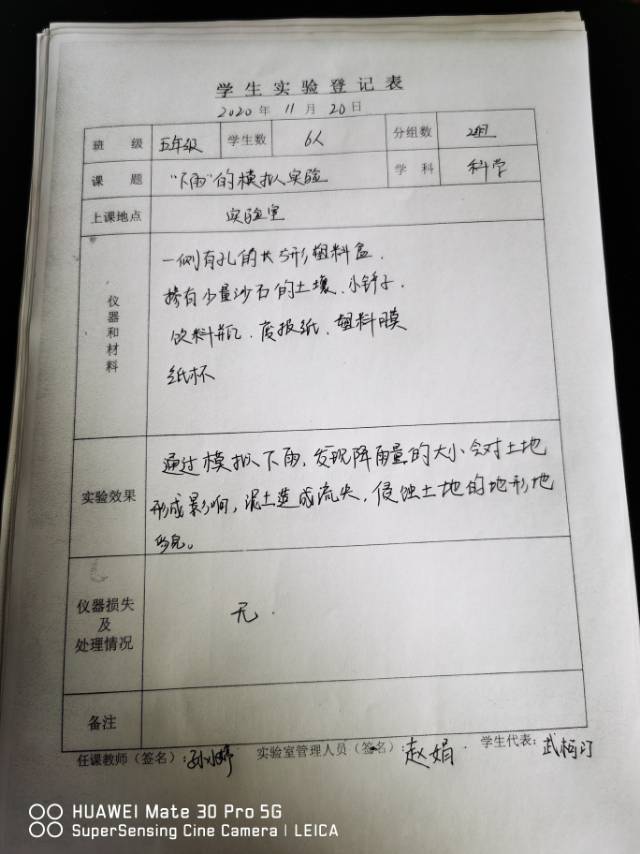 学生实验登记表
2020年 11月 20日
班级 五年级 学生数 6人 分组数 2组
课题 "下雨"的模拟实验 学科 科学
上课地点 实验室
仪器和材料
一侧有孔的长方形塑料盒.
掺有少量沙石的土壤、小铲子.
饮料瓶、废报纸、塑料膜
纸杯
实验效果
通过模拟下雨,发现降雨量的大小会对土地
形成影响,泥土造成流失,侵蚀土地的地形地
貌。
仪器损失
及
处理情况
无.
备注
任课教师(签名): 实验室管理人员(签名):赵娟. 学生代表:武柯
HUAWEI Mate 30 Pro 5G
SuperSensing Cine Camera | LEICA